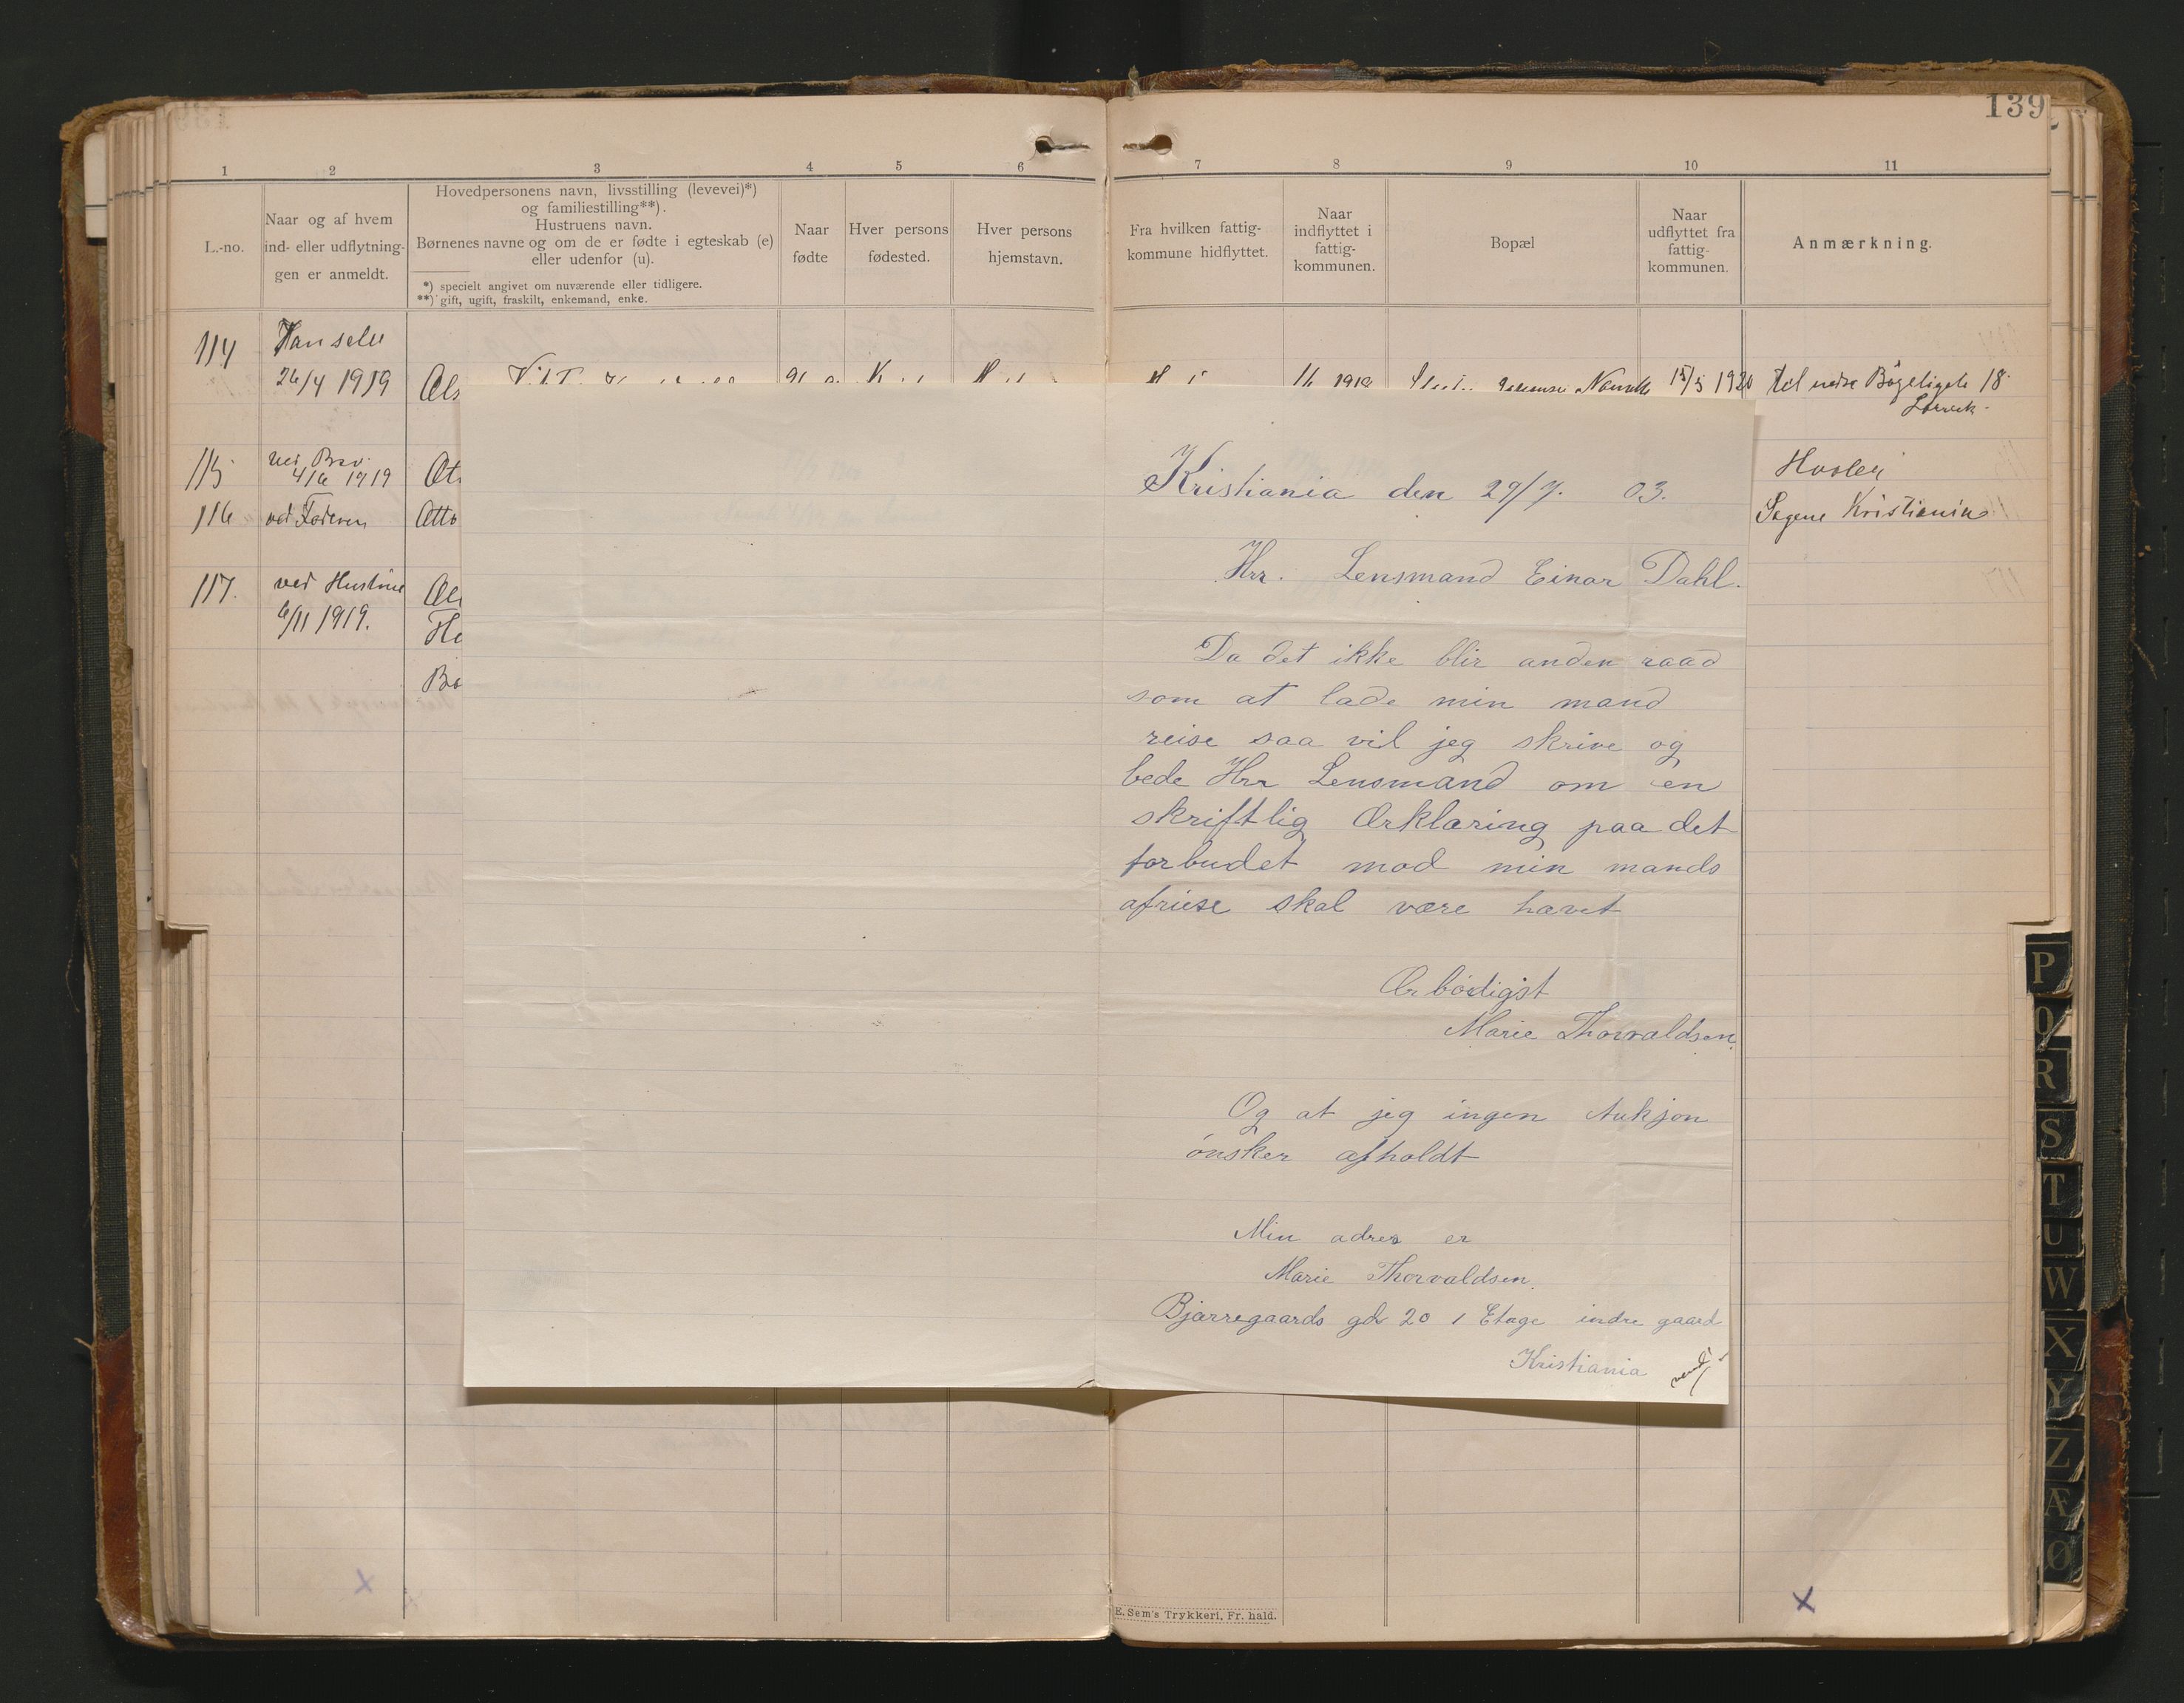 139
1 2 3 4 5 6 7 8 9 10 11
L.-no.
Naar og af hvem
ind- eller udflytnin-
gen er anmeldt.
Hovedpersonens navn, livsstilling (levevei)*)
og familiestilling**).
Hustruens navn.
Børnenes navne og om de er fødte i egteskab (e)
eller udenfor (u).
*) specielt angivet om nuværende eller tidligere.
**) gift, ugift, fraskilt, enkemand, enke.
Naar
fødte
Hver persons
fødested.
Hver persons
hjemstavn.
Fra hvilken fattig-
kommune hidflyttet.
Naar
indflyttet i
fattig-
kommunen.
Bopæl
Naar
udflyttet fra
fattig-
kommunen.
Anmærkning.
114
26/4 1919
15/5 1920 til nedre Bøgeligate 18
Larvik.
115 ved Brev
4/6 1919
116 ved Faderen Otto
Sagene Kristiania
117. ved Hustrue
6/11 1919.
Kristiania den 29/7. 03.
Hrr. Lensmand Einar Dahl.
Da det ikke blir anden raad
som at lade min mand
reise saa vil jeg skrive og
bede Hrr Lensmand om en
skriftlig Ærklæring paa det
forbudet mod min mands
afriese skal være hævet
Ærbödigst
Marie Thorvaldsen.
Og at jeg ingen Aukjon
önsker afholdt
Min adres er
Marie Thorvaldsen.
Bjærregaards gd 20 1 Etage indre gaard
Kristiania
vend!
E. Sem's Trykkeri, Fr. hald.
P
Q
R
S
T
U
W
X
Y
Z
Æ
Ø